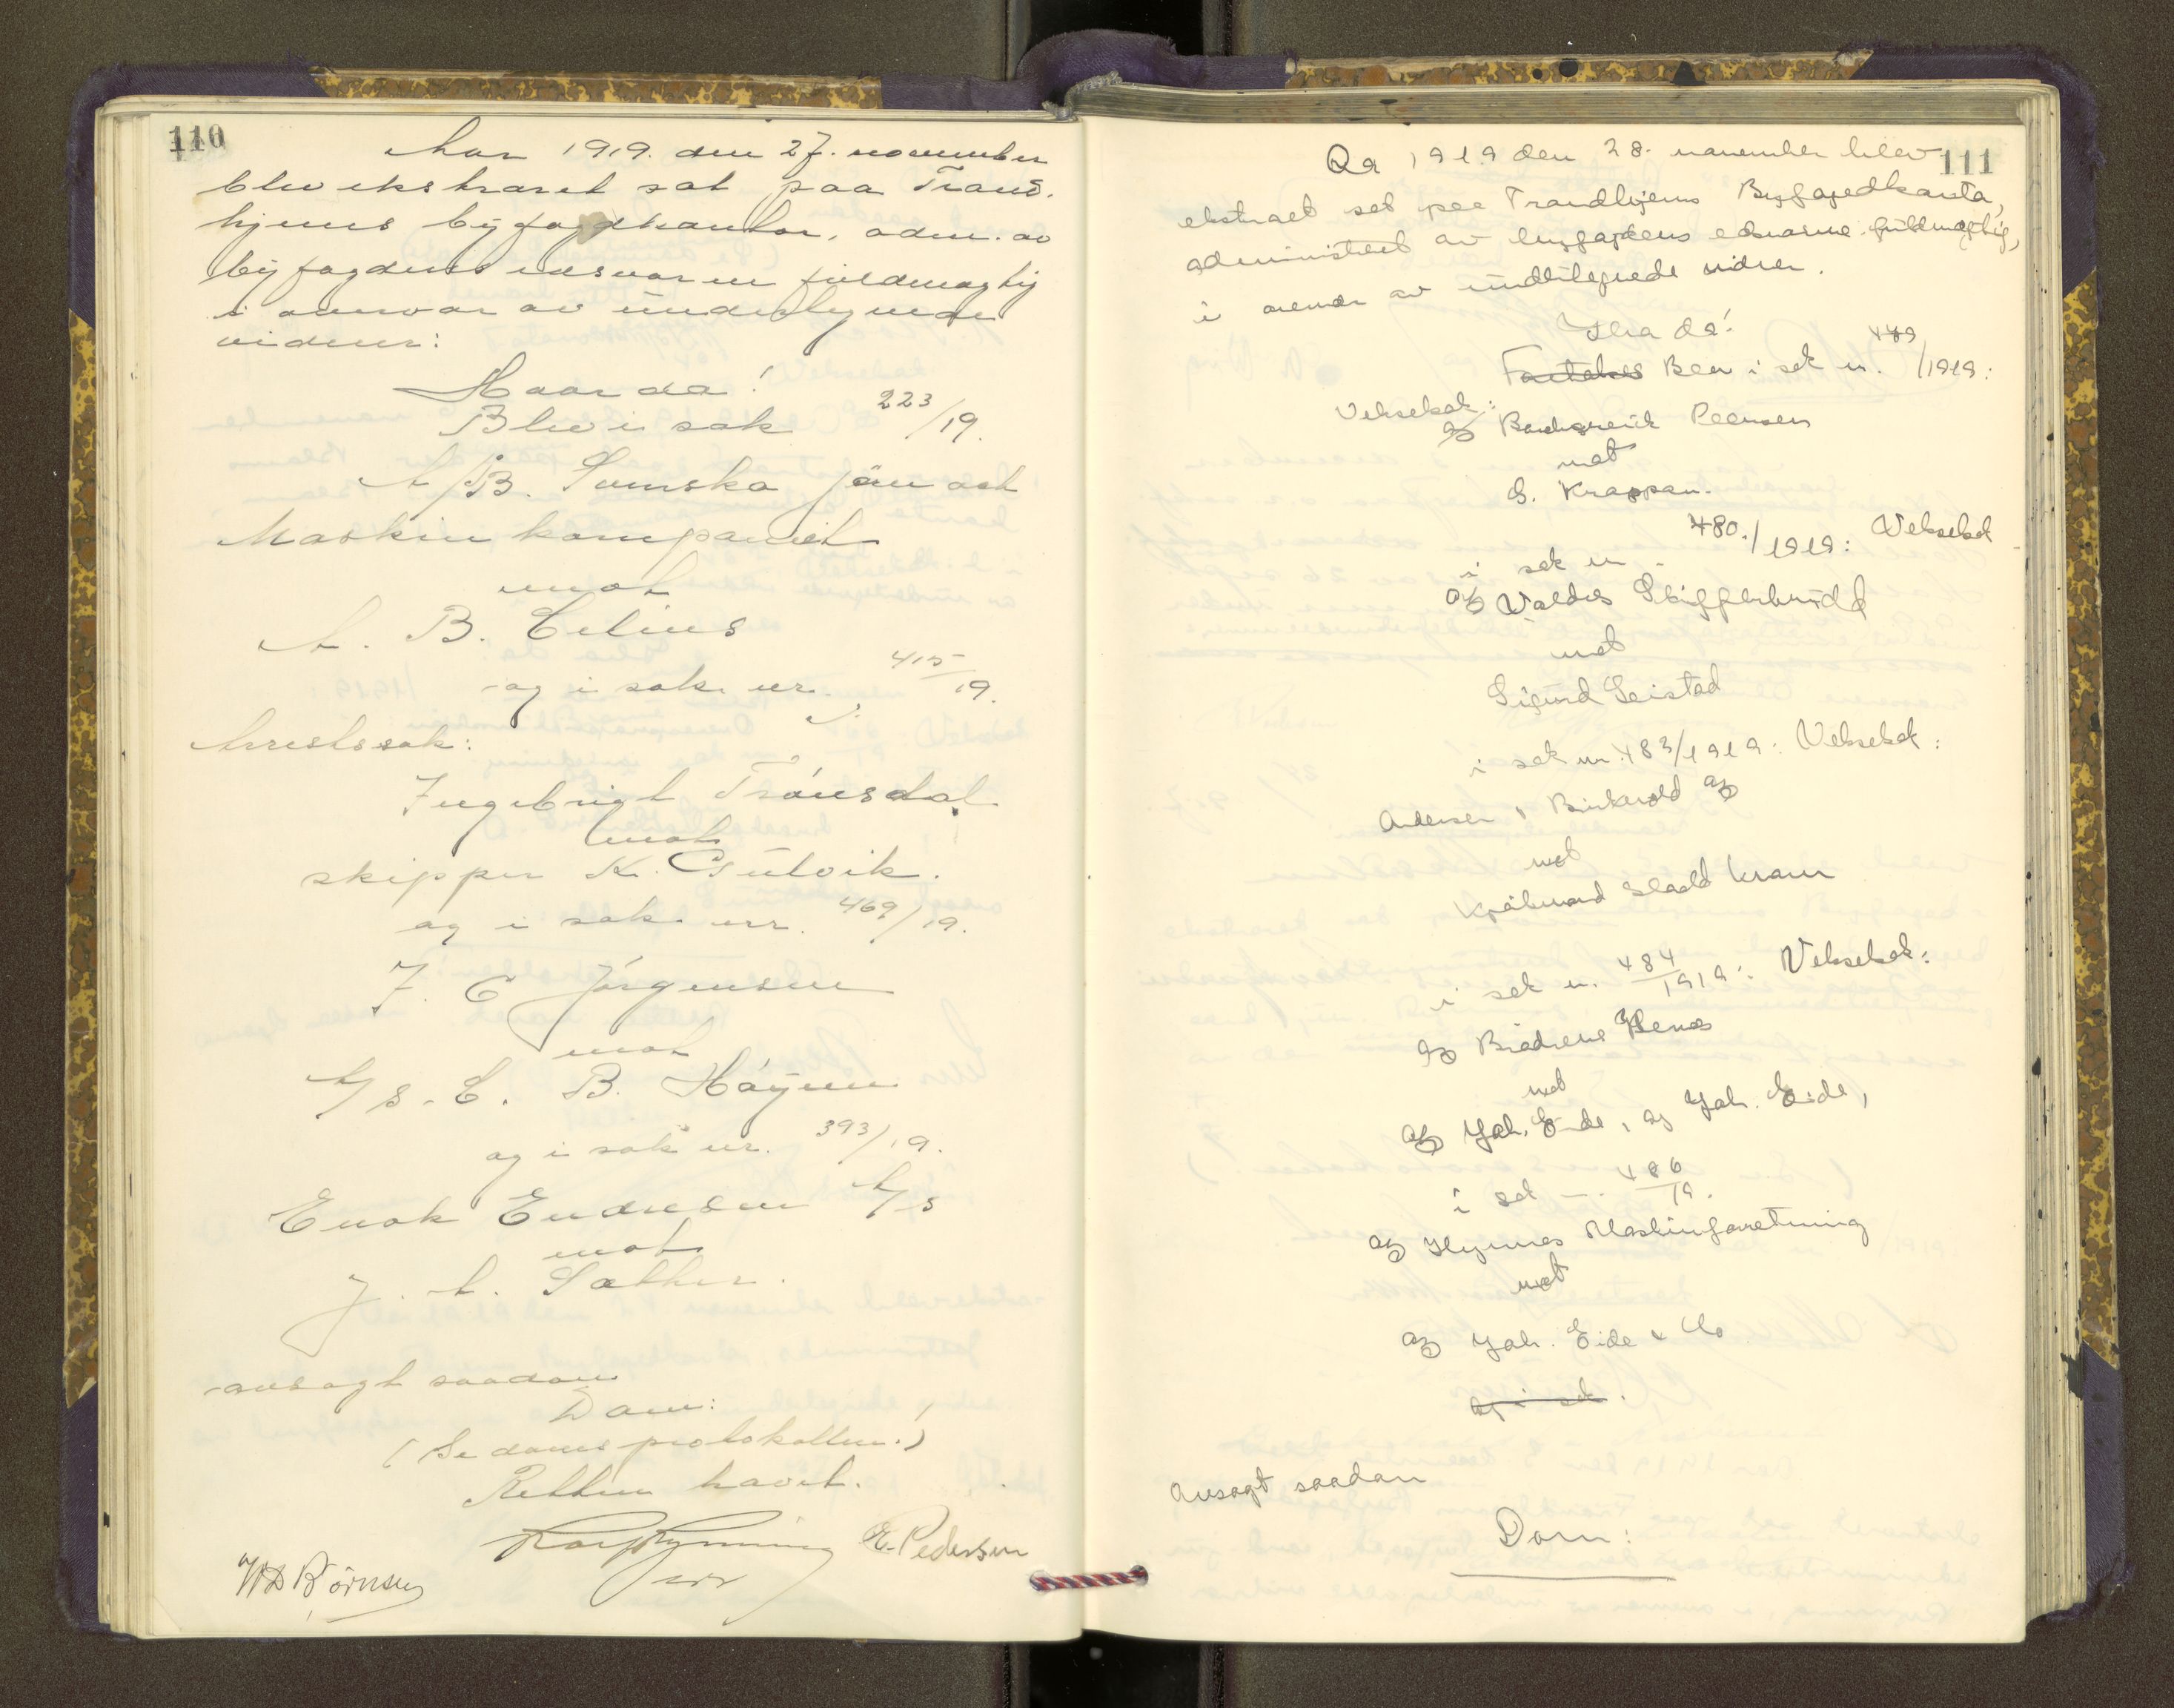 110
Aar 1919. den 27. november
blev ekstraret sat paa Trond-
hjems byfogdkontor, adm. av
byfogdens edsvorne fuldmægtig
i overvær av undertegnede
vidner:
Hvorda!
Blev i sak 223/19.
A/B. Svenska Järn och
Maskin kompaniet
mot
A. B. Cilius
og i sak nr. 415/19.
Arrestsak:
Ingebrigt Trónsdal
mot
skipper K. Gulvik.
og i sak nr. 469/19.
J. C Jörgensen
mot
A/S. E. B. Höyem
og i sak nr. 393/19.
Enok Endresen A/S
mot
J. A. Sæther.
avsagt saadan
Dom:
(Se domsprotokollen.)
Retten hævet.
E. Pedersen
111
Aar 1919 den 28. november blev
ekstraret sat paa Trondhjems Byfogedkonto,
administrert av byfogdens edsvorne fuldmægtig,
i overvær av undertegnede vidner.
Hvorda!
Foretokes Blev i sak nr. 479/1919:
Vekselsak:
mot
S. Krappan.
i sak nr. 480./1919: Vekselsak
A/S Valdes Skipperbudd
mot
Sigurd Leistad
i sak nr. 483/1919: Vekselsak:
Andersen & Birkevold A/S
mot
Kjøbmand Harald Kram
i sak nr. 484/1919: Vekselsak:
A/S Brødrene
mot
A/S Joh. Eide, A/S Joh. Eide,
i sak nr. 486/19.
A/S Hymnes Maskinforretning
mot
A/S Joh. Eide & Co
og i sak.
Avsagt saadan
Dom: